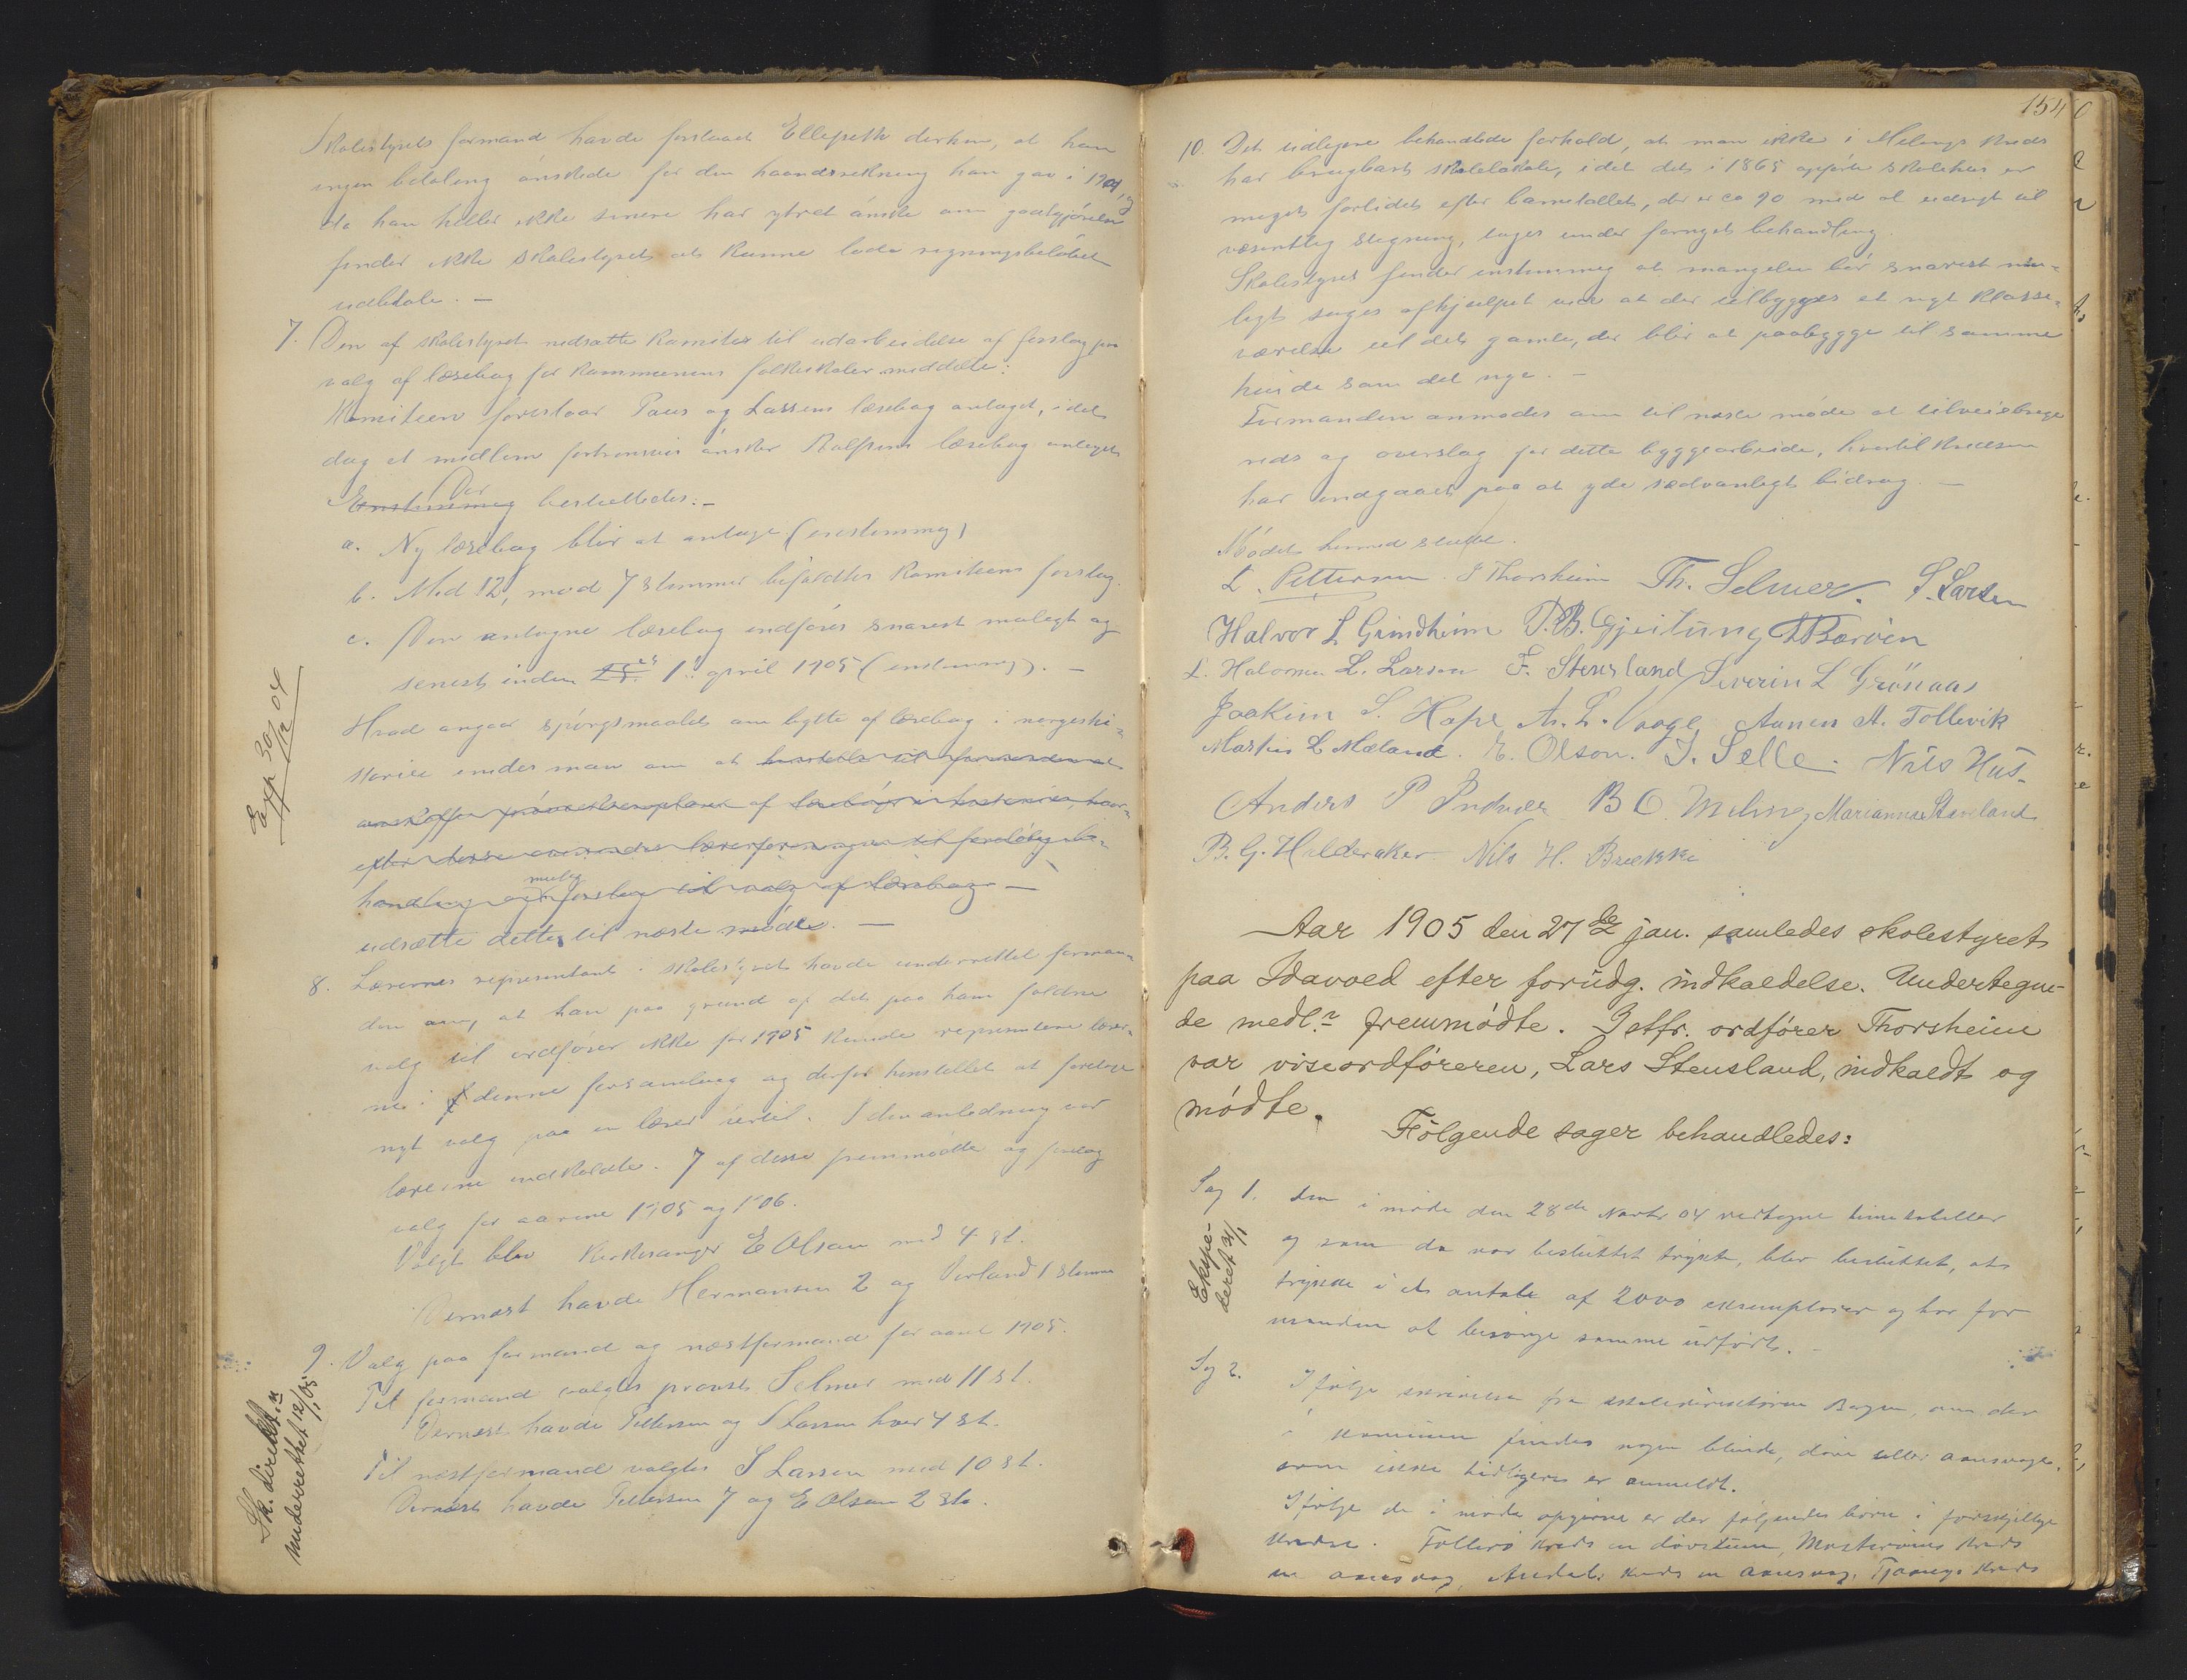 Skolestyrets formand havde forstaaet Ellefseth derhen, at han
ingen betaling ønskede for den haandsrekning han gav i 1901, og
da han heller ikke senere har ytret ønske om godtgjørelse
finder ikke skolestyret at kunne lade regningsbeløbet
udbetale. —
7. Den af skolestyret nedsatte Komite til udarbeidelse af forslag paa
valg af læsebog for Kommunens folkeskoler meddelte:
Komiteen foreslaar Paus og Lassens læsebog antaget, idet
dog et medlem fortrinsvis ønsker Rolfsens læsebog antaget.
Enstemmig Der besluttedes. —
a. Ny læsebog blir at antage (enstemmig)
b. Med 12, mod 7 stemmer bifaldtes Komiteens forslag.
c. Den antagne læsebog indføres snarest mulegt og
senest inden 1ste april 1905 (enstemmig). —
Hvad angaar spørgsmaalet om bytte af læsebog i norgeshi-
storie enedes man om at henstille til formanden at
anskaffe prøveexemplarer af lærebøger i historie, hvor-
efter disse
handling og mulig forslag til valg af læsebog —
udsætte dette til næste møde. —
8. Lærernes representant i skolestyret havde underrettet forman-
den om, at han paa grund af det paa ham faldne
valg til ordfører ikke for 1905 kunde representere lærer-
ne i denne forsamling og derfor henstillet at foretage
nyt valg paa en lærer dertil. I den anledning var
lærerne indkaldte. 7 af disse fremmødte og foretog
valg for aarene 1905 og 1906.
Valgt blev Kirkesanger E Olsen med 4 st.
Dernæst havde Hermansen 2 og Verland 1 stemme
9. Valg paa formand og næstformand for aaret 1905.
Til formand valgtes provst Selmer med 11 st.
Dernæst havde Pettersen og S Larsen hver 4 st.
Til næstformand valgtes S Larsen med 10 st.
Dernæst havde Pettersen 7 og E Olsen 2 st.
Exp 30/12 04
Sk. direktn
underrettet 12/1 05
154
10. Det tidligere behandlede forhold, at man ikke i Melings Kreds
har brugbart skolelokale, idet det i 1865 opførte skolehus er
meget forlidet efter barnetallet, der er ca 90 med al udsigt til
væsentlig stegning, toges under fornyet behandling.
Skolestyret finder enstemmig at mangelen bør snarest mu-
ligt søges afhjulpet ved at der tilbygges et nyt klasse-
værelse til det gamle, der blir at paabygge til samme
høide som det nye. —
Formanden anmodes om til næste møde at tilveiebringe
rids og overslag for dette byggearbeide, hvortil Kredsen
har indgaaet paa at yde sedvanlegt bidrag. —
Mødet hermed sluttet.
L. Pettersen J Thorsheim Th. Selmer. S. Larsen
Halvor L Grindheim P.B. Gjeitung ABørøen
L. Halvorsen L. Larsen F. Stensland Severin L Grønaas
Joakim S. Hope A. L. Vaage Aamen A. Tollevik
Martin L Mæland. E. Olson. J. Selle. Nils Hus-
Anders P Indvær B O. Meling Marianna Stensland
B. G. Halderaker Nils H. Brække
Aar 1905 den 27de jan. samledes skolestyret
paa Idavoll efter forudg. indkaldelse. Undertegne-
de medl.r fremmødte. I stfr. ordfører Thorsheim
var viseordføreren, Lars Stensland, indkaldt og
mødte.
Følgende sager behandledes:
Sag 1. Den i møde den 28de Novbr 04 vedtagne timetabeller
og som da var besluttet trykt, blev besluttet, at
trykke i et antal af 2000 exemplarer og har for
manden at besørge samme udført. —
Ekspe-
deret 31/1
Sag 2. Ifølge skrivelse fra skoledirektøren Bergen, om der
i kommunen findes nogen blinde, døve eller aansvage,
som ikke tidligere er anmeldt.
Ifølge de i møde opgivne er der følgende børn i forskjellige
Kredse. Follesø Kreds en døvstum, Mosterøens Kreds
en aansvag, Andals Kreds en aansvag. Tjaange Kreds